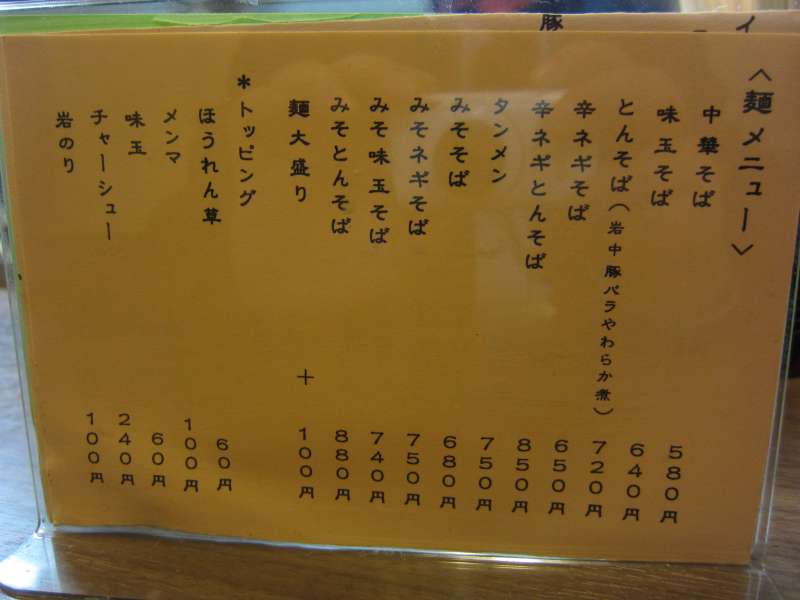 〈麺メニュー〉
中華そば 580円
味玉そば 640円
とんそば(岩中豚バラやわらか煮) 720円
辛ネギそば 650円
辛ネギとんそば 850円
タンメン 750円
みそそば 680円
みそネギそば 750円
みそ味玉そば 740円
みそとんそば 880円
麺大盛り +100円
*トッピング
ほうれん草 60円
メンマ 100円
味玉 60円
チャーシュー 240円
岩のり 100円